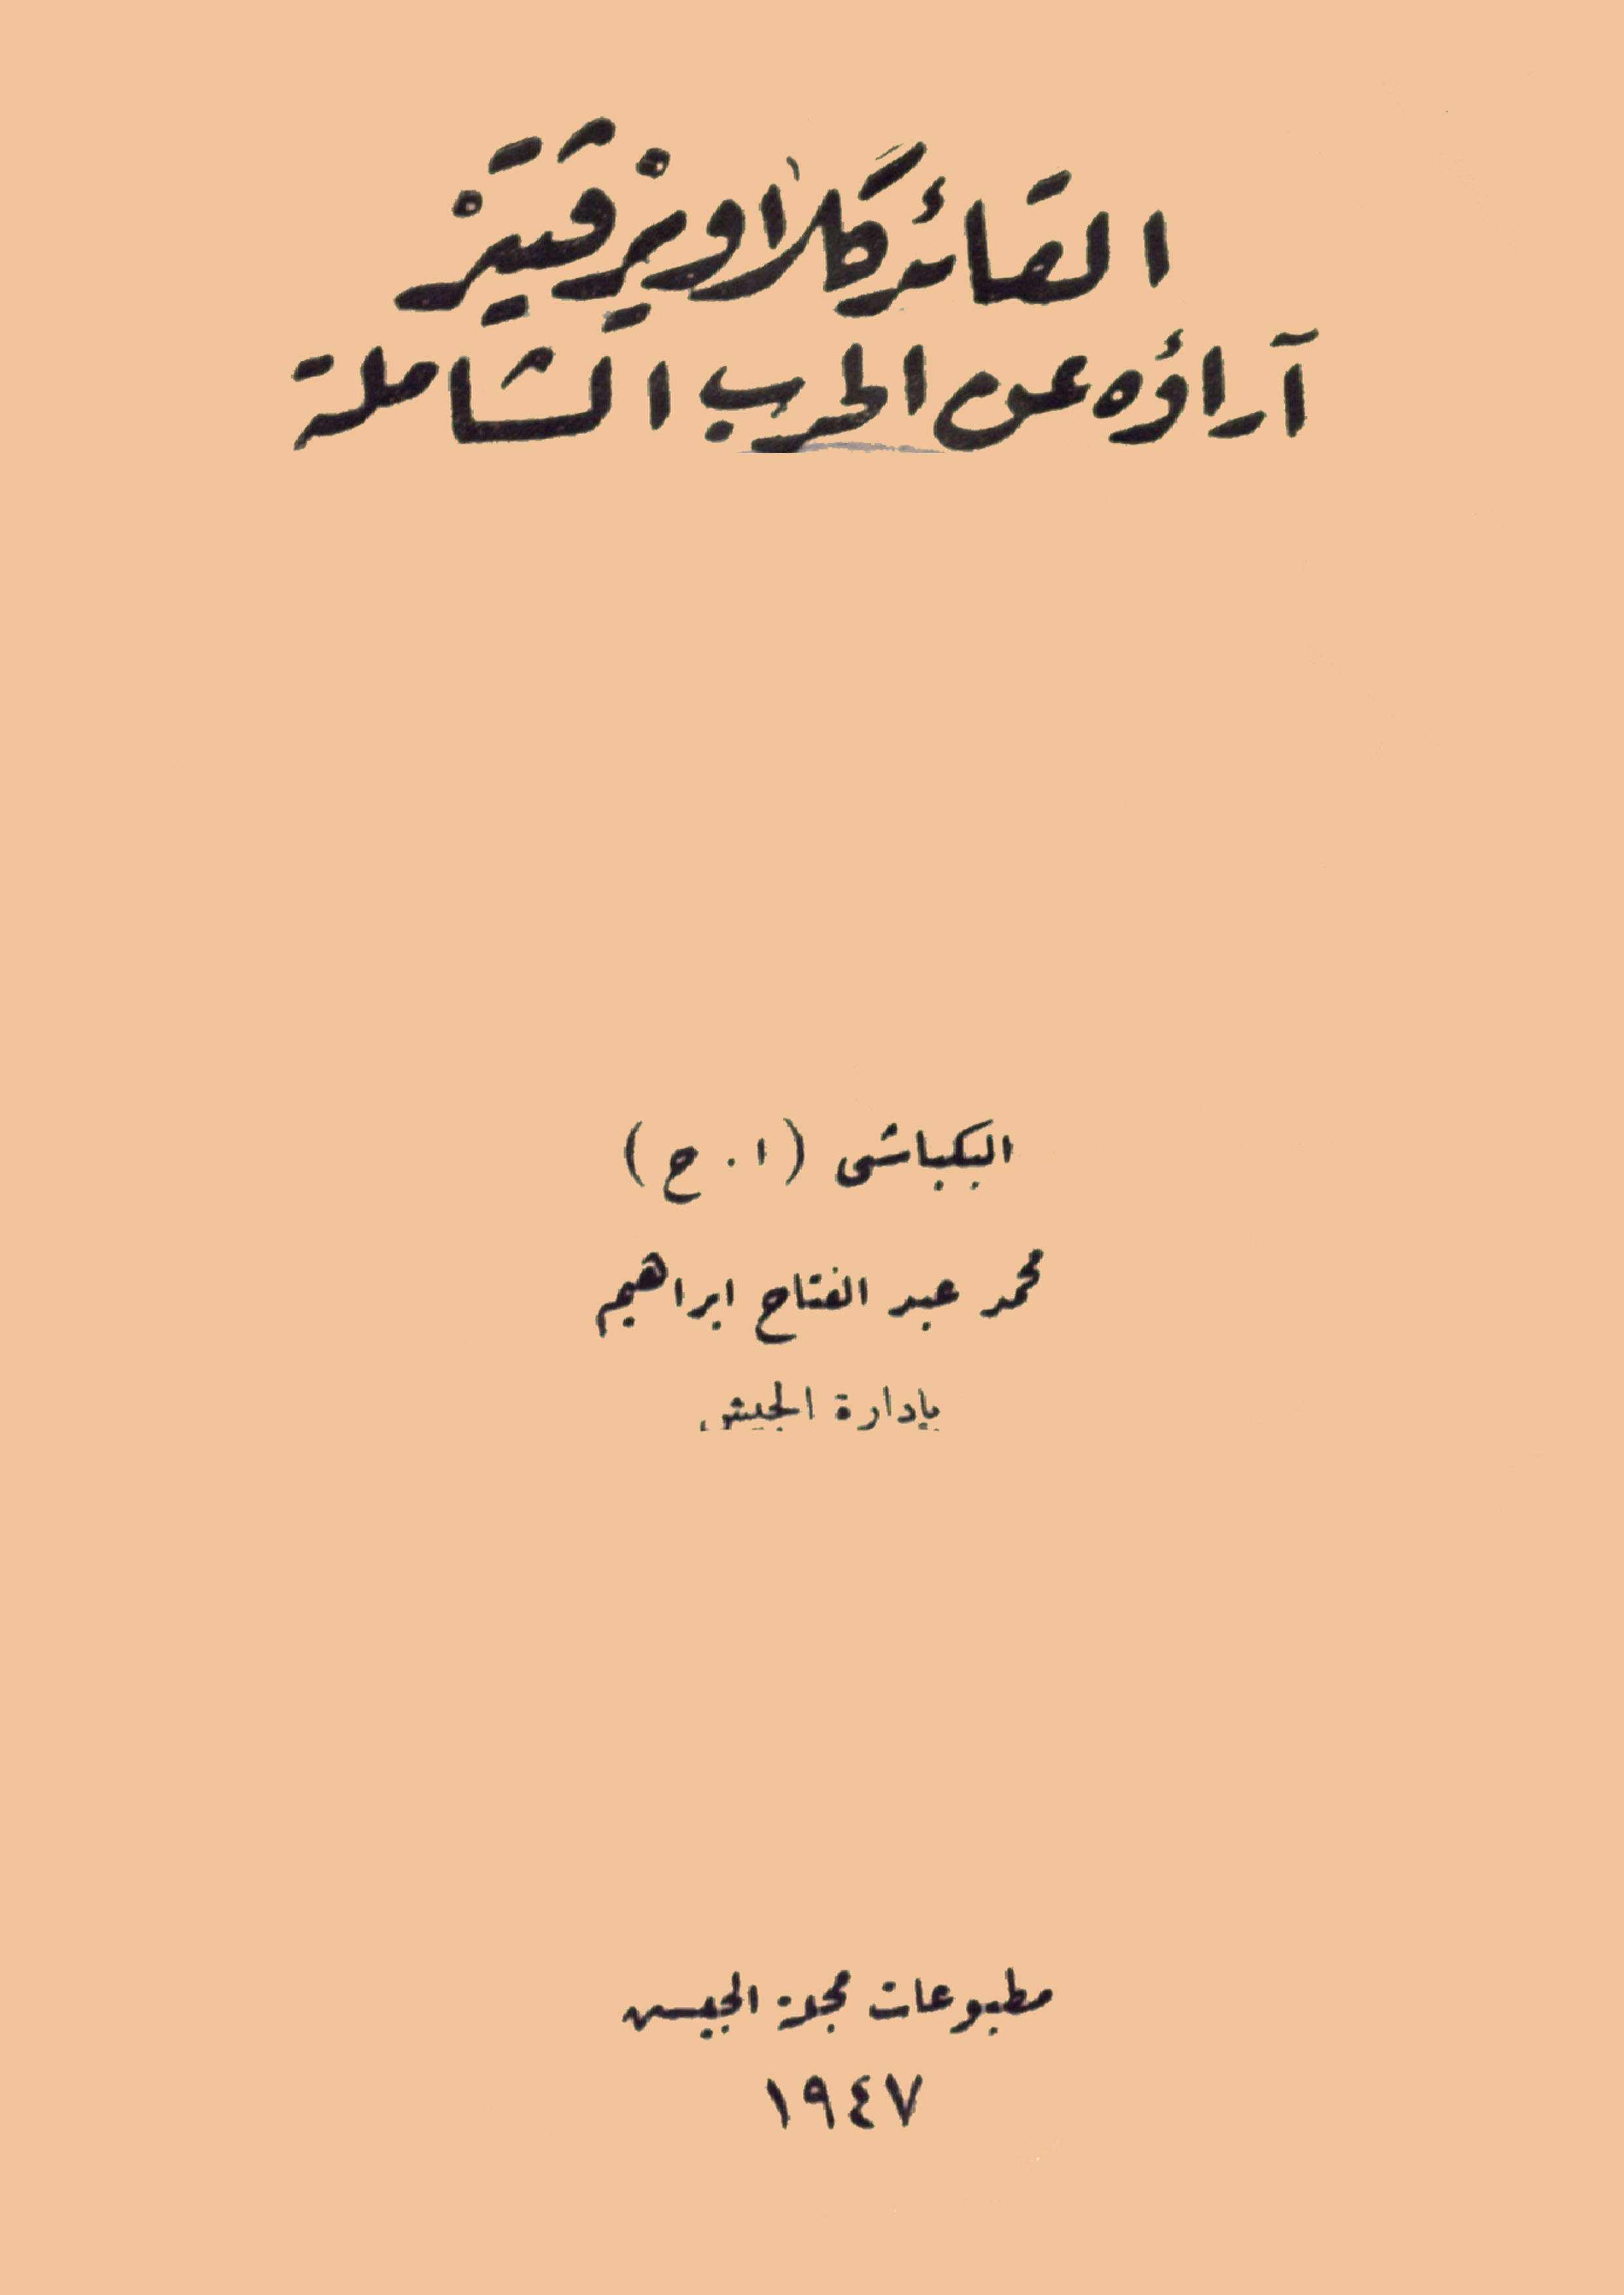 القائد كلاويزڤيتز
آراؤه عن الحرب الشاملة
البكباشى (ا . ح)
محمد عبد الفتاح ابراهيم
بادارة الجيش
مطبوعات مجلة الجيش
١٩٤٧